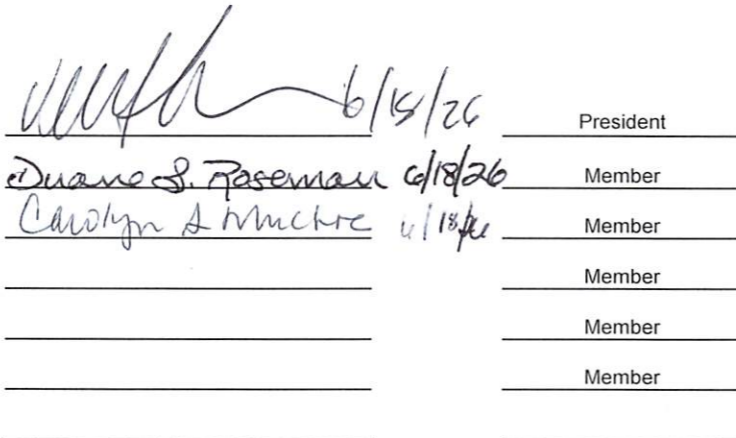 6/18/26 President
Duane S. Roseman 6/18/26 Member
Carolyn 6/18/26 Member
Member
Member
Member